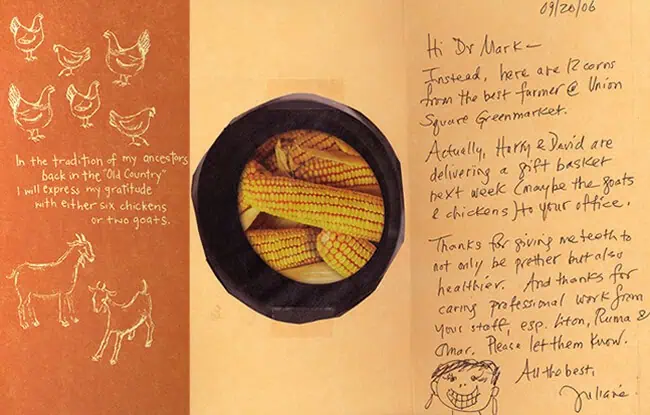 In the tradition of my ancestors
back in the "Old Country"
I will express my gratitude
with either six chickens
or two goats.
09/20/06
Hi Dr Mark—
Instead, here are 12 corns
from the best farmer @ Union
Square Greenmarket.
Actually, Harry & David are
delivering a gift basket
next week (maybe the goats
& chickens) to your office.
Thanks for giving me teeth to
not only be prettier but also
healthier. And thanks for
caring professional work from
your staff, esp. Liton, Ruma &
Omar. Please let them know.
All the best,
Juliane